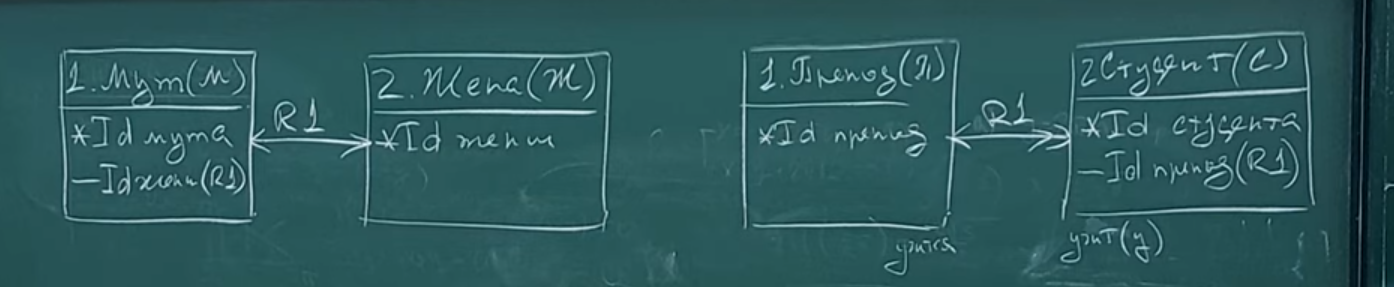 1. Муж(М)
*Id мужа
-Id жены(R1)
R1
2. Жена(Ж)
*Id жены
1. Препод(П)
*Id препод
R1
2 Студент(С)
*Id студента
-Id препод(R1)
учит(у)